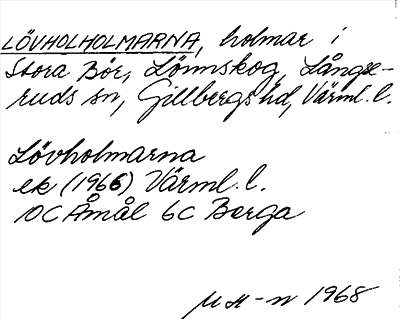 LÖVHOLHOLMARNA, holmar i
Stora Bör, Lönnskog, Långse-
ruds sn, Gillbergs hd, Värml. l.
Lövholmarna
ek (1966) Värml. l.
10C Åmål 6C Berga
1968